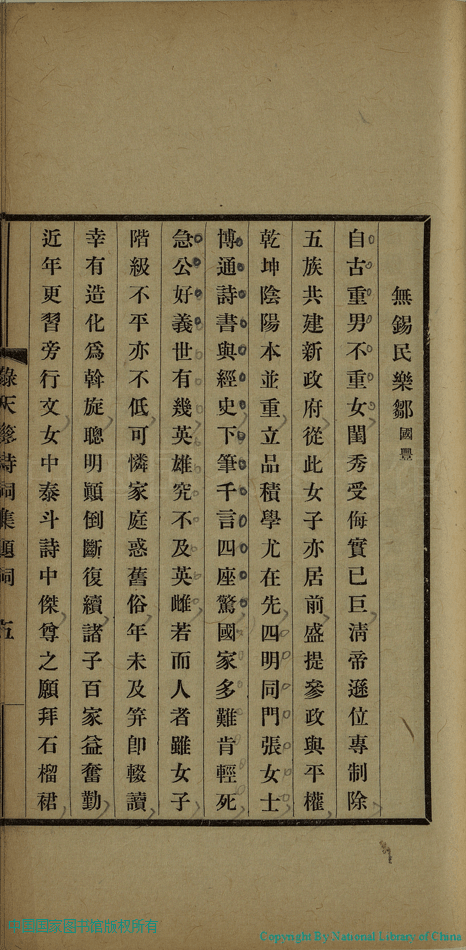 無錫民樂鄒國豐
自古重男不重女閨秀受侮實已巨淸帝遜位專制除
五族共建新政府從此女子亦居前盛提參政與平權
乾坤陰陽本並重立品積學尤在先四明同門張女士
博通詩書與經史下筆千言四座驚國家多難肯輕死
急公好義世有幾英雄究不及英雌若而人者雖女子
階級不平亦不低可憐家庭惑舊俗年未及笄卽輟讀
幸有造化爲斡旋聰明顚倒斷復續諸子百家益奮勤
近年更習旁行文女中泰斗詩中傑尊之願拜石榴裙
詩詞集題詞 五
中国国家图书馆版权所有
Copyright By National Library of China